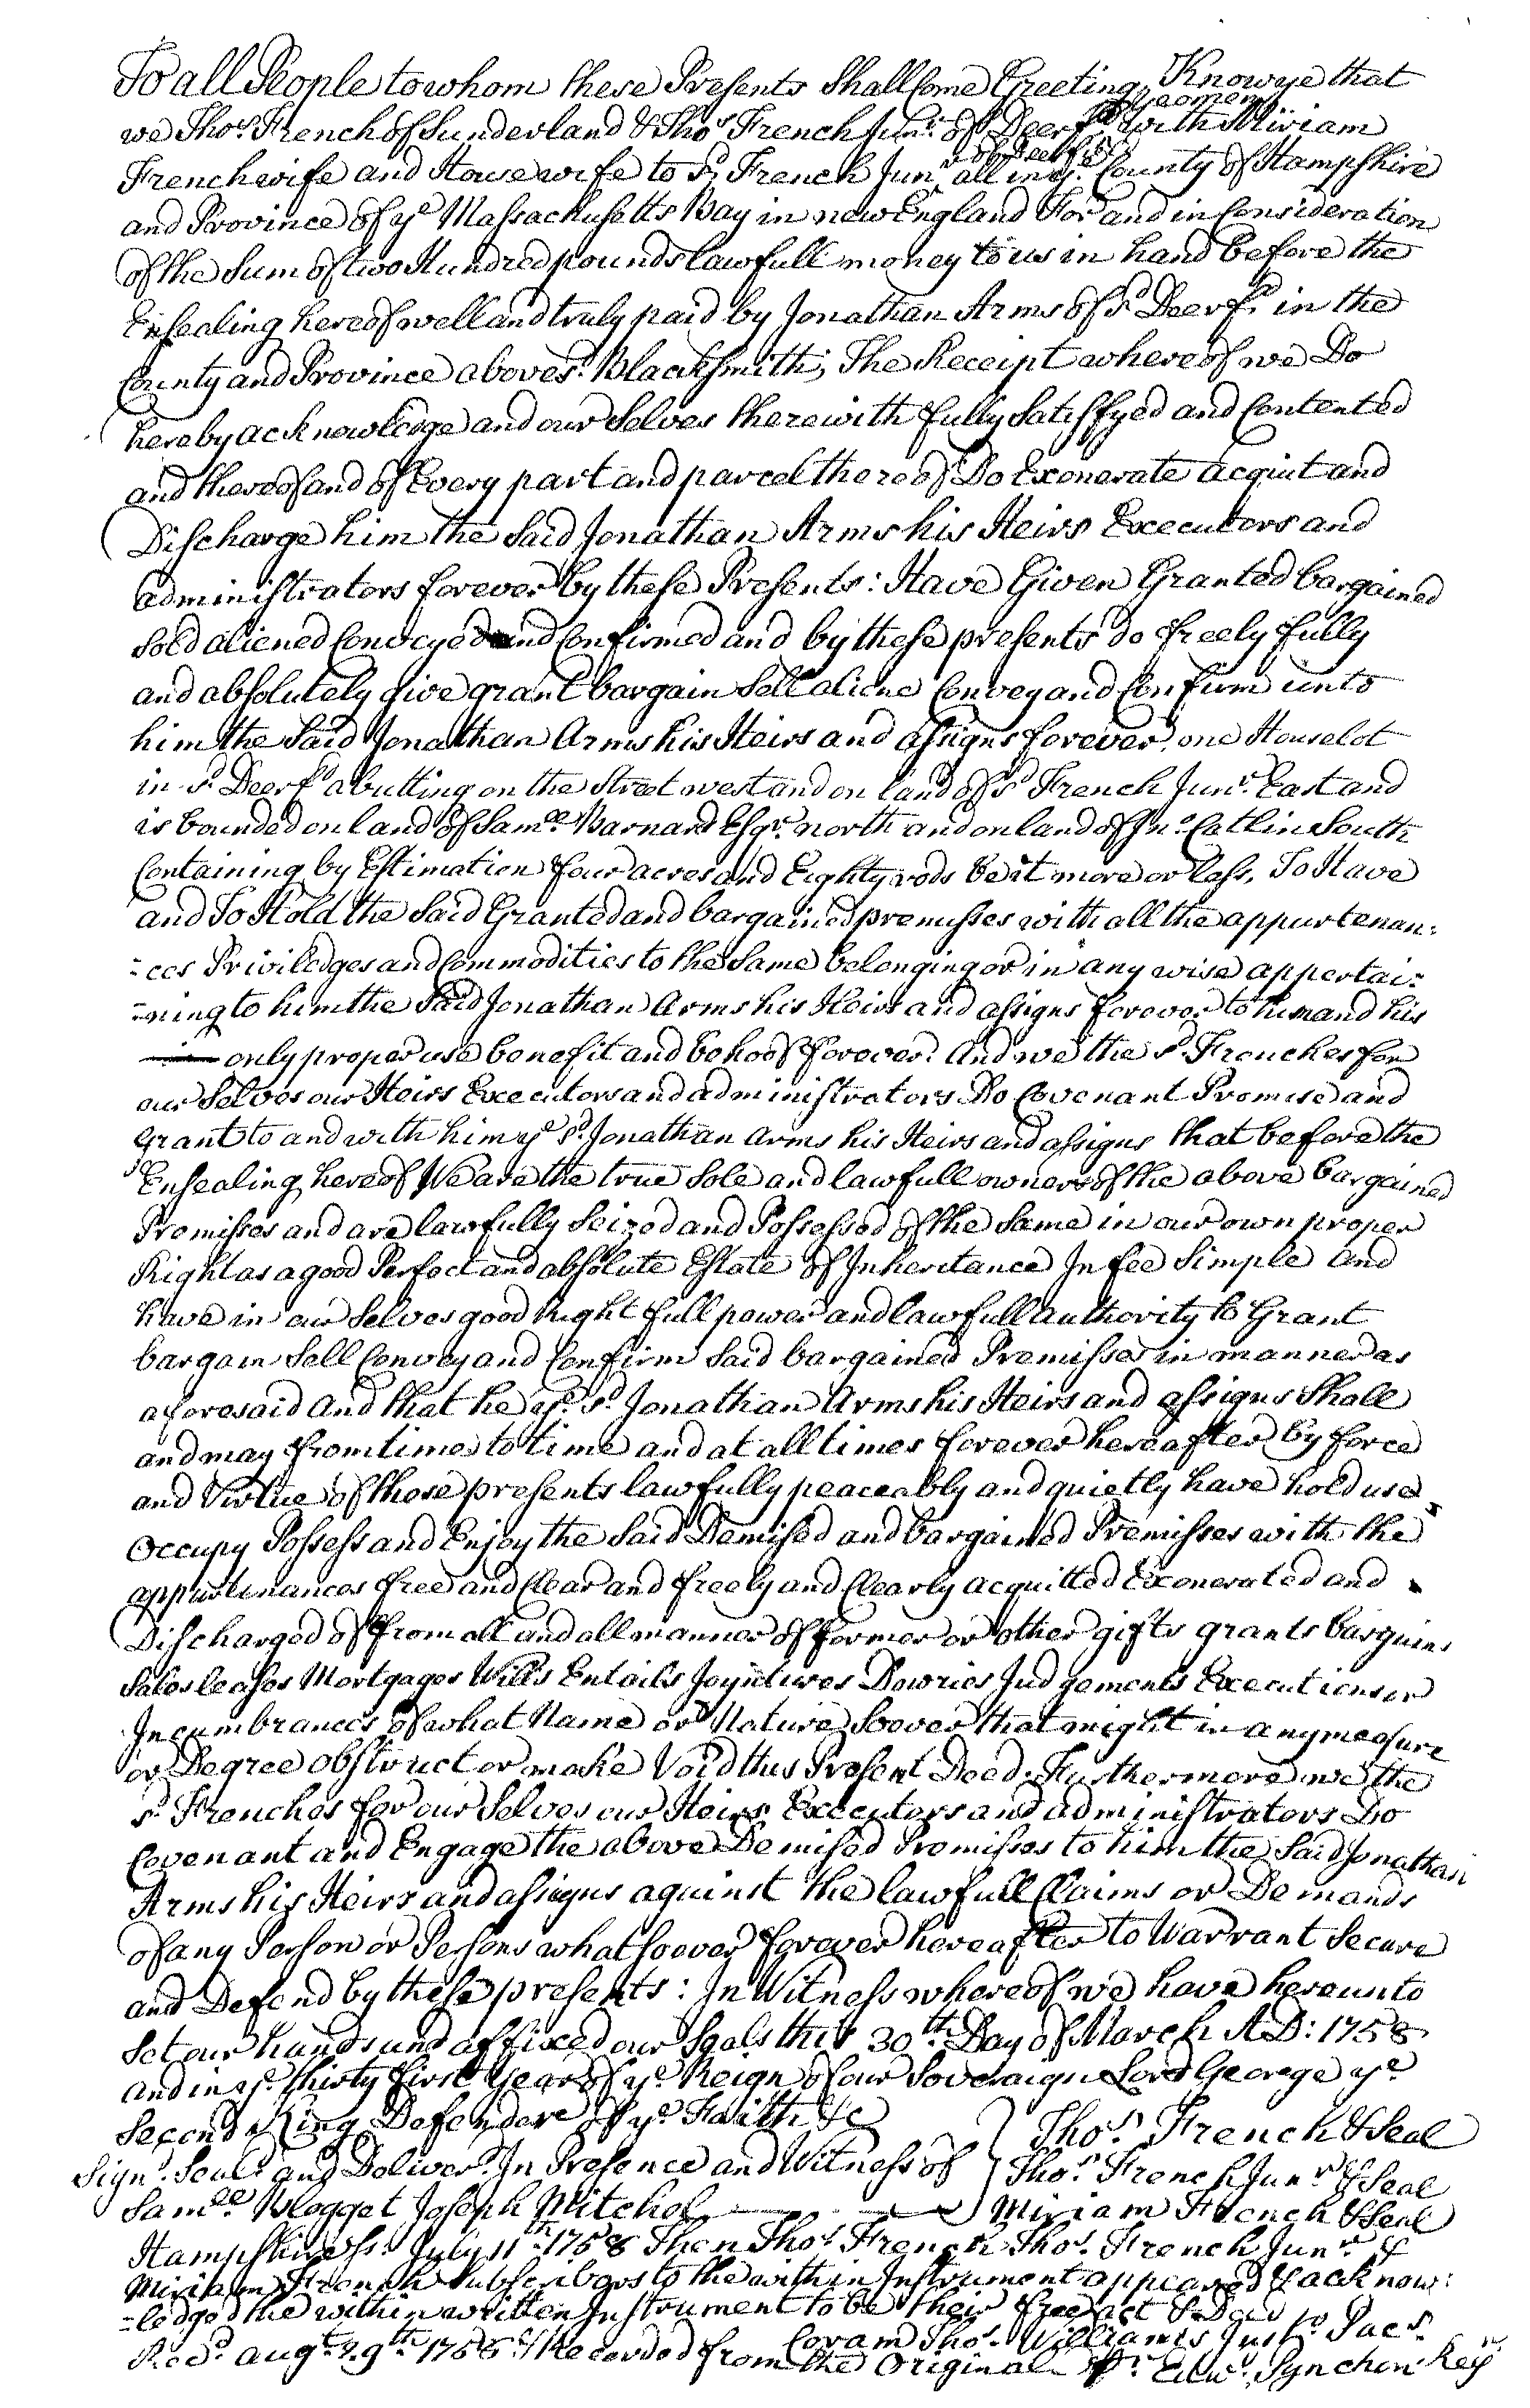 To all People to whom these Presents Shall Come Greeting, Know ye that
we Thos. French of Sunderland & Thos. French Junr. of Deerfd. yeomen with Miriam
French wife and Housewife to sd. French Junr. of Deerfd. all in ye. County of Hampshire
and Province of ye Massachusetts Bay in new England For and in Consideration
of the Sum of two Hundred pounds lawfull money to us in hand before the
Ensealing hereof well and truly paid by Jonathan Arms of sd. Deerfd. in the
County and Province abovesd. Blacksmith; The Receipt whereof we Do
hereby acknowledge and our Selves therewith fully Satisfyed and Contented
and thereof and of Every part and parcel thereof Do Exonerate acquit and
Discharge him the Said Jonathan Arms his Heirs Executors and
administrators forever by these Presents: Have Given Granted bargained
Sold aliened Conveyed and Confirmed and by these presents do freely fully
and absolutely give grant bargain Sell aliene Convey and Confirm unto
him the Said Jonathan Arms his Heirs and assigns forever, one Houselot
in sd. Deerfd. abutting on the Street west and on land of sd. French Junr. East and
is bounded on land of Samll. Barnard Esqr. north and on land of Jno. Catlin South
Containing by Estimation four acres and Eighty rods be it more or less, To Have
and To Hold the Said Granted and bargained premisses with all the appurtenan:
:ces Priviledges and Commodities to the Same belonging or in any wise appertai:
:ning to him the Said Jonathan Arms his Heirs and assigns forever to him and his
only proper use benefit and behoof forever. And we the sd. Frenches for
our Selves our Heirs Executors and administrators Do Covenant Promise and
Grant to and with him ye sd. Jonathan Arms his Heirs and assigns that before the
Ensealing hereof We are the true Sole and lawfull owners of the above bargained
Premisses and are lawfully Seized and Possessed of the Same in our own proper
Right as a good Perfect and absolute Estate of Inheritance In fee Simple and
have in our Selves good Right full power and lawfull authority to Grant
bargain Sell Convey and Confirm Said bargained Premisses in manner as
aforesaid and that he ye. sd. Jonathan Arms his Heirs and assigns Shall
and may from time to time and at all times forever hereafter by force
and Virtue of these presents lawfully peaceably and quietly have hold use
Occupy Possess and Enjoy the Said Demised and bargained Premisses with the
appurtenances free and Clear and freely and Clearly acquitted Exonerated and
Discharged of from all and all manner of former or other gifts grants bargains
Sales leases Mortgages Wills Entails Joyntures Dowries Judgements Executions or
Incumbrances of what Name or Nature Soever that might in any measure
or Degree obstruct or make Void this Present Deed. Furthermore we the
sd. Frenches for our Selves our Heirs Executors and administrators Do
Covenant and Engage the above Demised Premisses to him the Said Jonathan
Arms his Heirs and assigns against the lawfull Claims or Demands
of any Person or Persons whatsoever forever hereafter to Warrant Secure
and Defend by these presents: In Witness whereof we have hereunto
Set our hands and affixed our Seals this 30th. Day of March A:D: 1758
and in ye. thirty first Year of ye. Reign of our Soveraign Lord George ye
Second King Defender of ye Faith &c
Thos. French & Seal
Signd. Seald. and Deliverd. In Presence and Witness of
Thos. French Junr. & Seal
Samll. Blogget Joseph Mitchel
Miriam French & Seal
Hampshire ss. July 11th 1758 Then Thos. French Thos. French Junr. &
Miriam French Subscribers to the within Instrument appeared & acknow:
:ledged the within written Instrument to be their free act & Deed
Coram Thos. Williams Justs. Pacs.
Recd. augt. 29th. 1758 & Recorded from the Original Pr. Edwd. Pynchon Regr